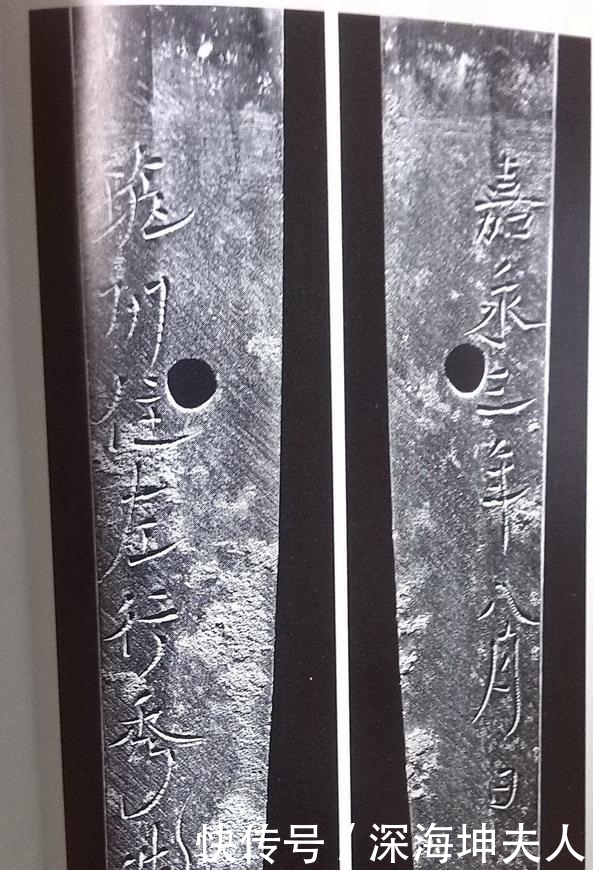 筑州住左行秀
嘉永三年八月日
快传号 / 深海坤夫人